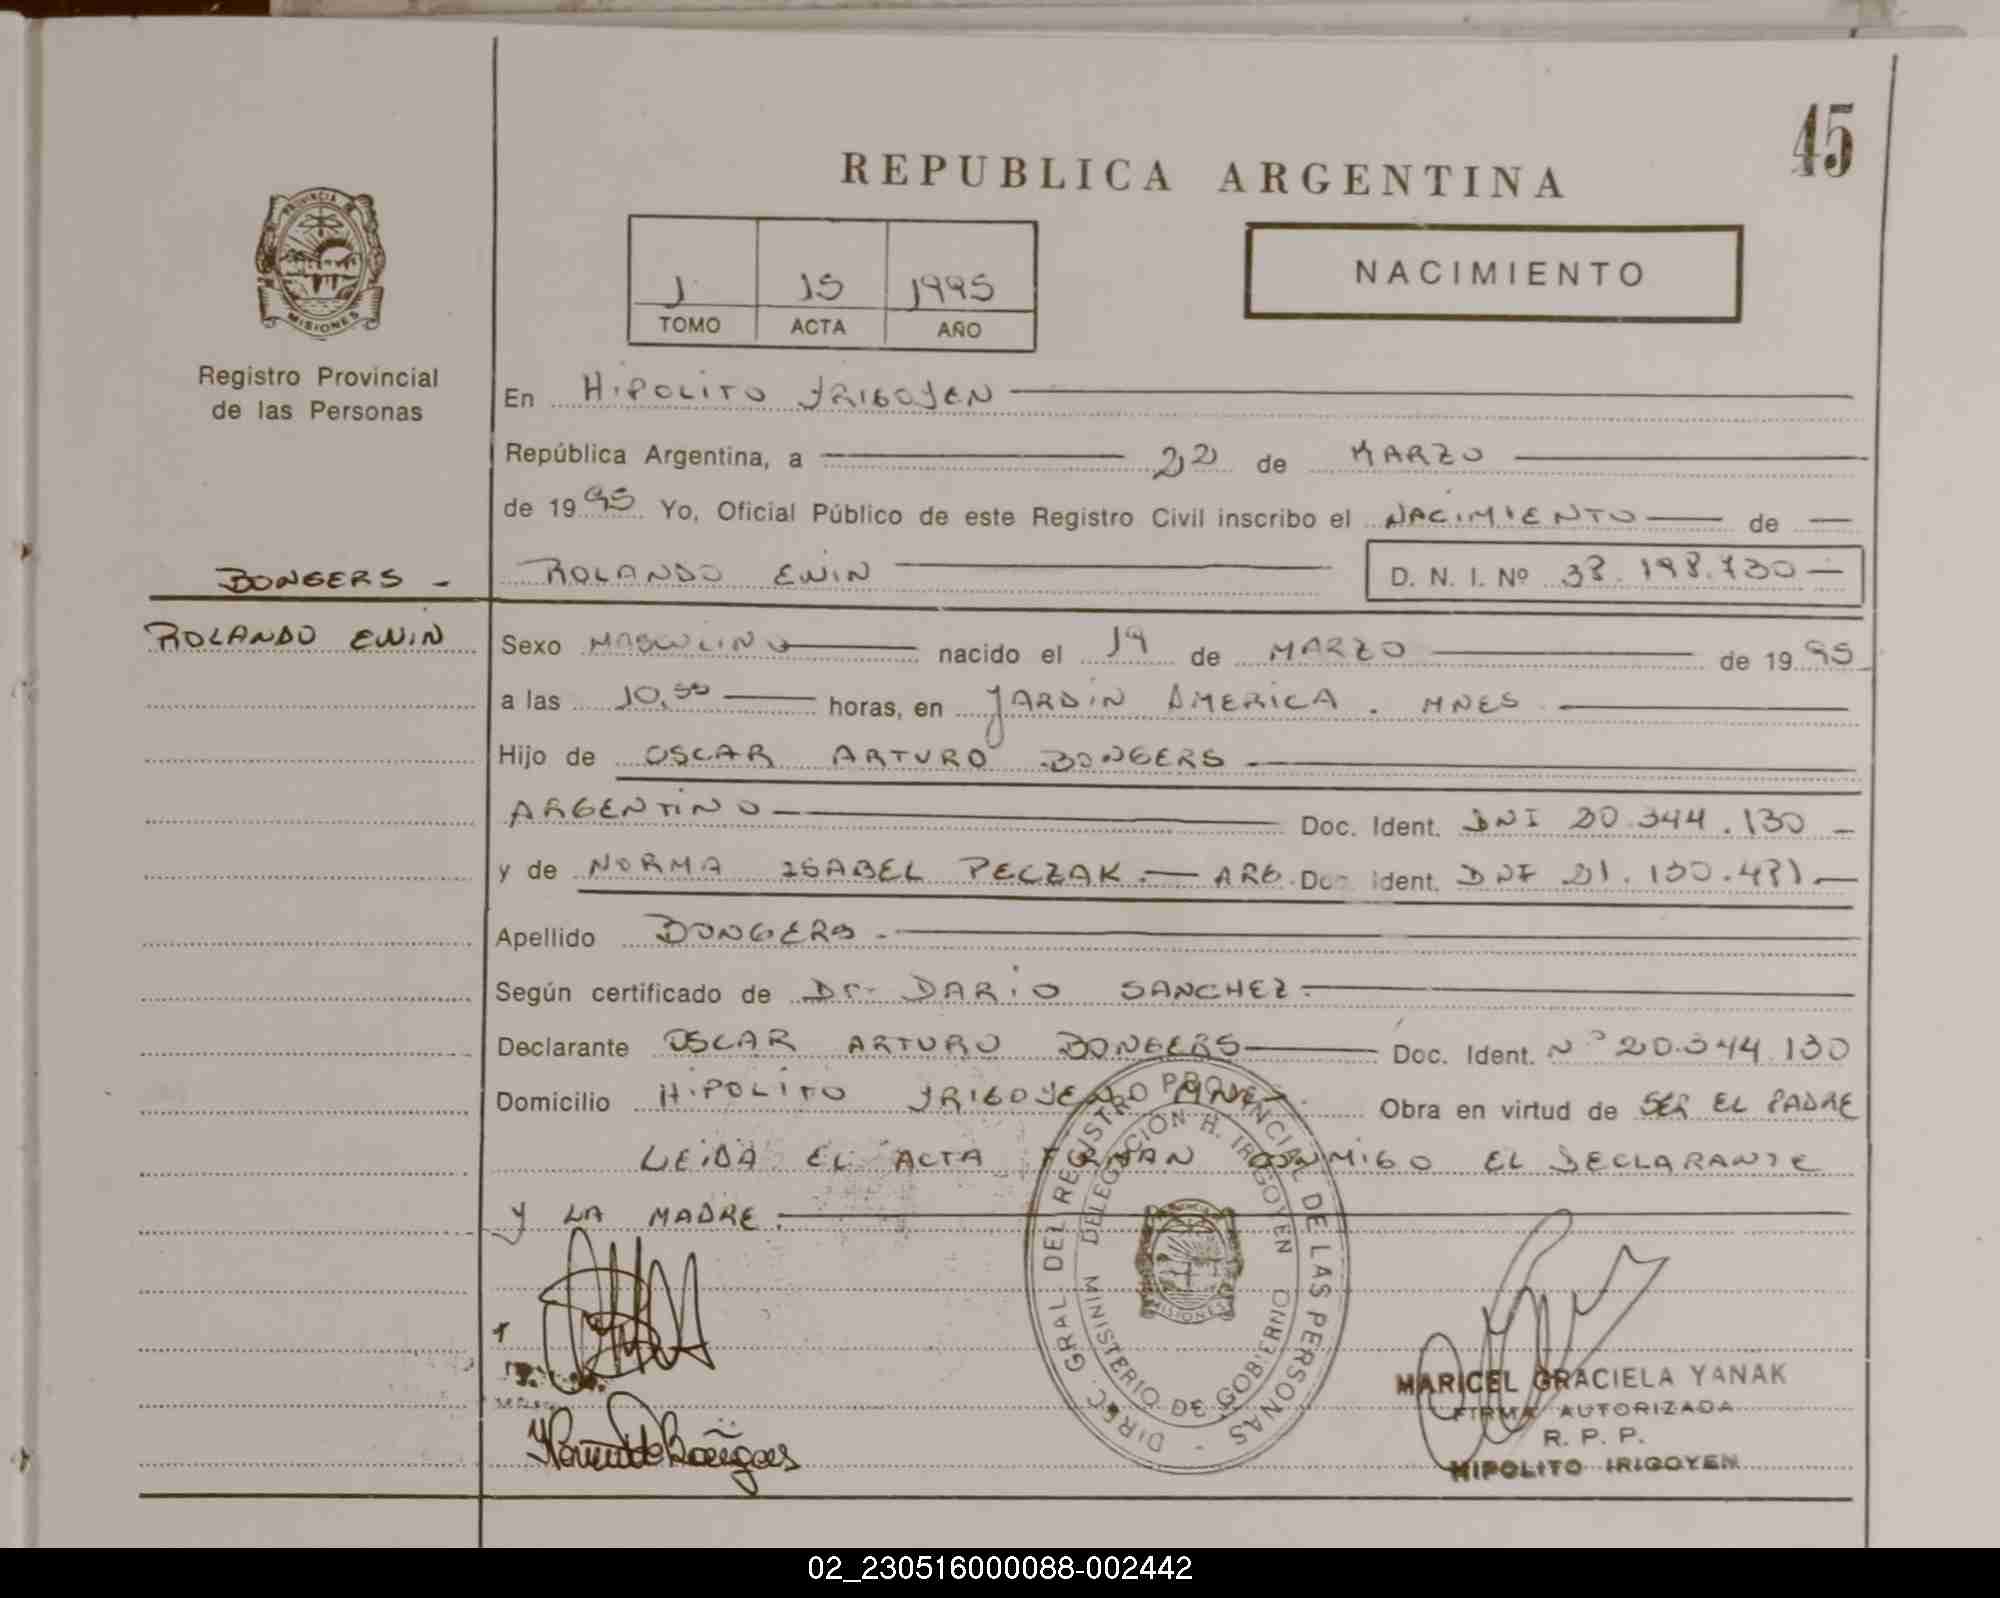 45
REPUBLICA ARGENTINA
PROVINCIA DE
MISIONES
Registro Provincial
de las Personas
1 15 1995
TOMO ACTA AÑO
NACIMIENTO
En HIPOLITO YRIGOYEN
República Argentina, a 22 de MARZO
de 1995 Yo, Oficial Público de este Registro Civil inscribo el NACIMIENTO de
BONGERS - ROLANDO EWIN D. N. I. Nº 38.198.730
ROLANDO EWIN
Sexo MASCULINO nacido el 19 de MARZO de 1995
a las 10,55 horas, en JARDIN AMERICA. MNES
Hijo de OSCAR ARTURO BONGERS
ARGENTINO Doc. Ident. DNI 20.344.130
y de NORMA ISABEL PECZAK. ARG. Doc. Ident. DNI 21.130.471
Apellido BONGERS.
Según certificado de Dr. DARIO SANCHEZ.
Declarante OSCAR ARTURO BONGERS Doc. Ident. Nº 20.344.130
Domicilio HIPOLITO YRIGOYEN MNES. Obra en virtud de SER EL PADRE
LEIDA EL ACTA FIRMAN CONMIGO EL DECLARANTE
Y LA MADRE.
DIREC. GRAL. DEL REGISTRO PROVINCIAL DE LAS PERSONAS -
DELEGACION H. IRIGOYEN
MINISTERIO DE GOBIERNO
MISIONES
MARICEL GRACIELA YANAK
FIRMA AUTORIZADA
R. P. P.
HIPOLITO IRIGOYEN
02_230516000088-002442